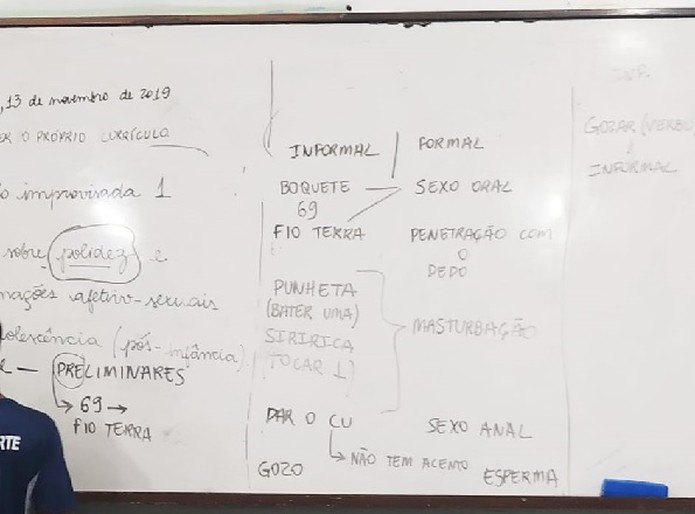 , 13 de novembro de 2019
ER O PRÓPRIO CURRÍCULO
o improvisada 1
sobre polidez e
mações afetivo-sexuais
olescência (pós-infância)
e — PRELIMINARES
↳ 69 →
FIO TERRA
RTE
INFORMAL / FORMAL
BOQUETE — SEXO ORAL
69
FIO TERRA PENETRAÇÃO COM
O
DEDO
PUNHETA
(BATER UMA)
MASTURBAÇÃO
SIRIRICA
(TOCAR 1)
DAR O CU SEXO ANAL
↳ NÃO TEM ACENTO
GOZO ESPERMA
GOZAR (VERBO
INFORMAL